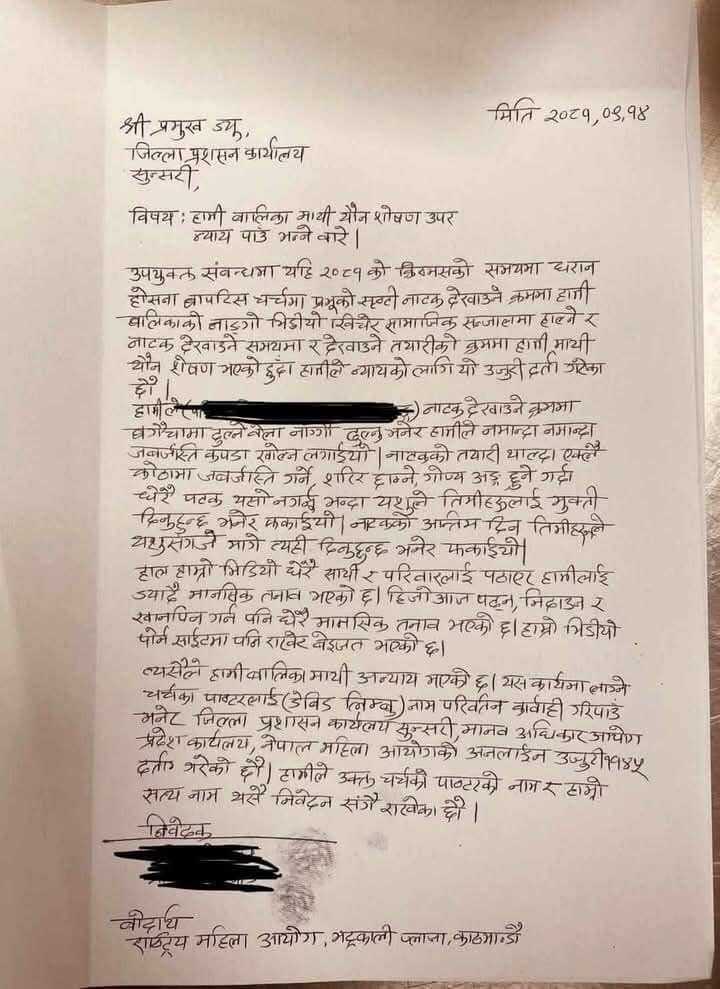 मिति २०८१,०९,१४
श्री प्रमुख ज्यू,
जिल्ला प्रशासन कार्यालय
सुन्सरी,
विषय : हामी बालिका माथी यौन शोषण उपर
न्याय पाउं भन्ने बारे |
उपयुक्त संवन्धमा यहि २०८१ को क्रिसमसको समयमा धरान
होसना बापटिस चर्चमा प्रभुको सृष्टी नाटक देखाउने क्रममा हामी
बालिकाको नाङगो भिडीयो खिचेर सामाजिक सन्जालमा हाल्ने र
नाटक देखाउने समयमा र देखाउने तयारीको क्रममा हामी माथी
यौन शोषण भएको हुदाँ हामीले न्यायको लागि यो उजुरी दर्ता गरेका
छौं |
हामीले नाटक देखाउने क्रममा
बगैँचामा डुल्ने बेला नाग्गो डुल्नु भनेर हामीले नमान्दा नमान्दा
जबर्जस्ति कपडा खोल्न लगाईयो | नाटकको तयारी थाल्दा एक्लै
कोठामा जबर्जास्ति गर्ने, शरिर छाम्ने, गोप्य अङ्ग छुने गर्दा
धेरै पटक यसो नगर्नु भन्दा यशुले तिमीहरूलाई मुक्ती
दिनुहुन्छ भनेर फकाईयो | नाटकको अन्तिम दिन तिमीहरूले
यशुसंग जे मागे त्यही दिनुहुन्छ भनेर फकाईयो |
हाल हाम्रो भिडियो धेरै साथी र परिवारलाई पठाएर हामीलाई
ज्यादै मानसिक तनाव भएको छ | हिजोआज पढ्न, निदाउन र
खानपिन गर्न पनि धेरै मानसिक तनाव भएको छ | हाम्रो भिडीयो
पोर्न साईटमा पनि राखेर बेइजत भएको छ |
त्यसैले हामी बालिका माथी अन्याय भएको छ | यस कार्यमा लाग्ने
चर्चका पाष्टरलाई (डेविड लिम्बु) नाम परिवर्तन कार्वाही गरिपाउं
भनेर जिल्ला प्रशासन कार्यलय सुन्सरी, मानव अधिकार आयोग
प्रदेश कार्यलय, नेपाल महिला आयोगको अनलाईन उजुरी ११४५
दर्ता गरेको छौं | हामीले उक्त चर्चको पाष्टरको नाम र हाम्रो
सत्य नाम यसै निवेदन संगै राखेका छौं |
निवेदक
बोदार्थ
राष्ट्रिय महिला आयोग, भद्रकाली प्लाजा, काठमाण्डौ